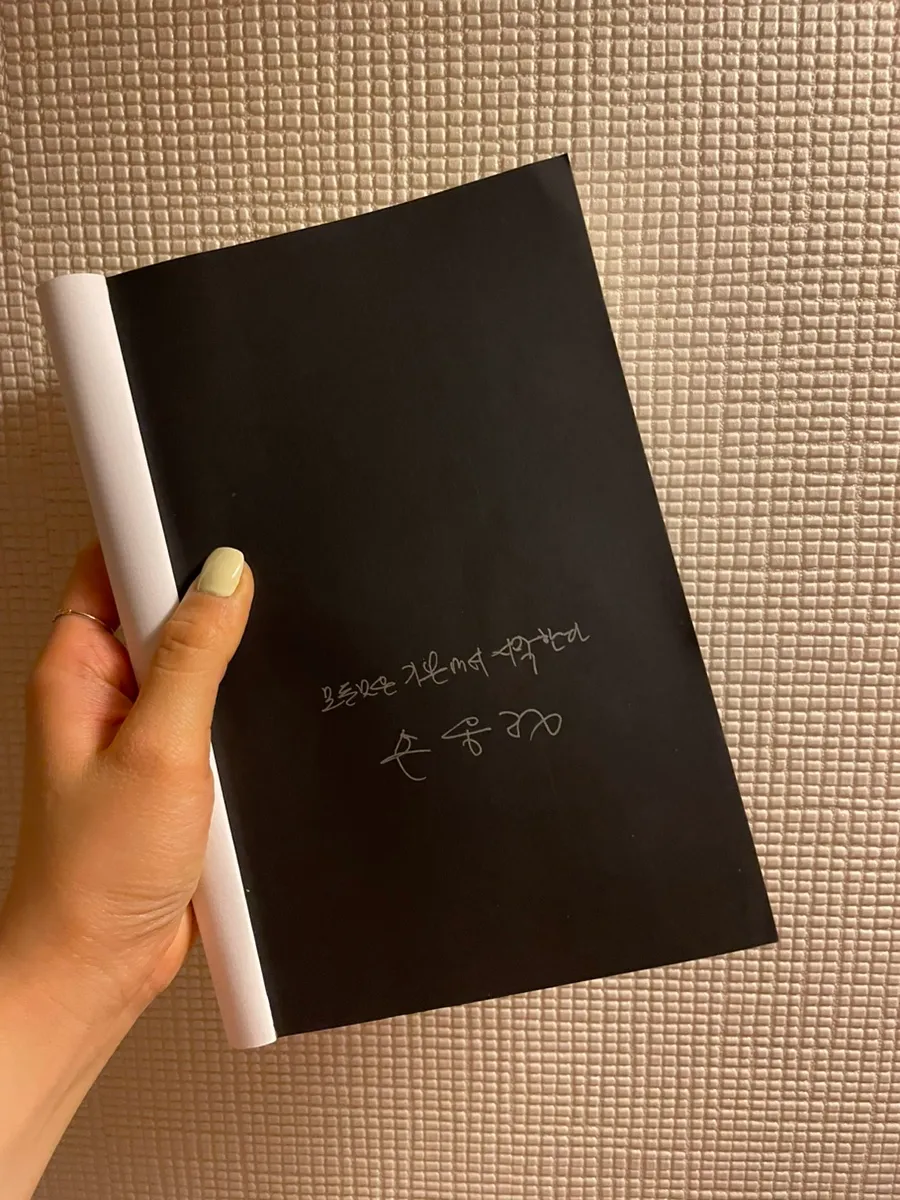 모든것은 기본에서 시작한다
손웅정